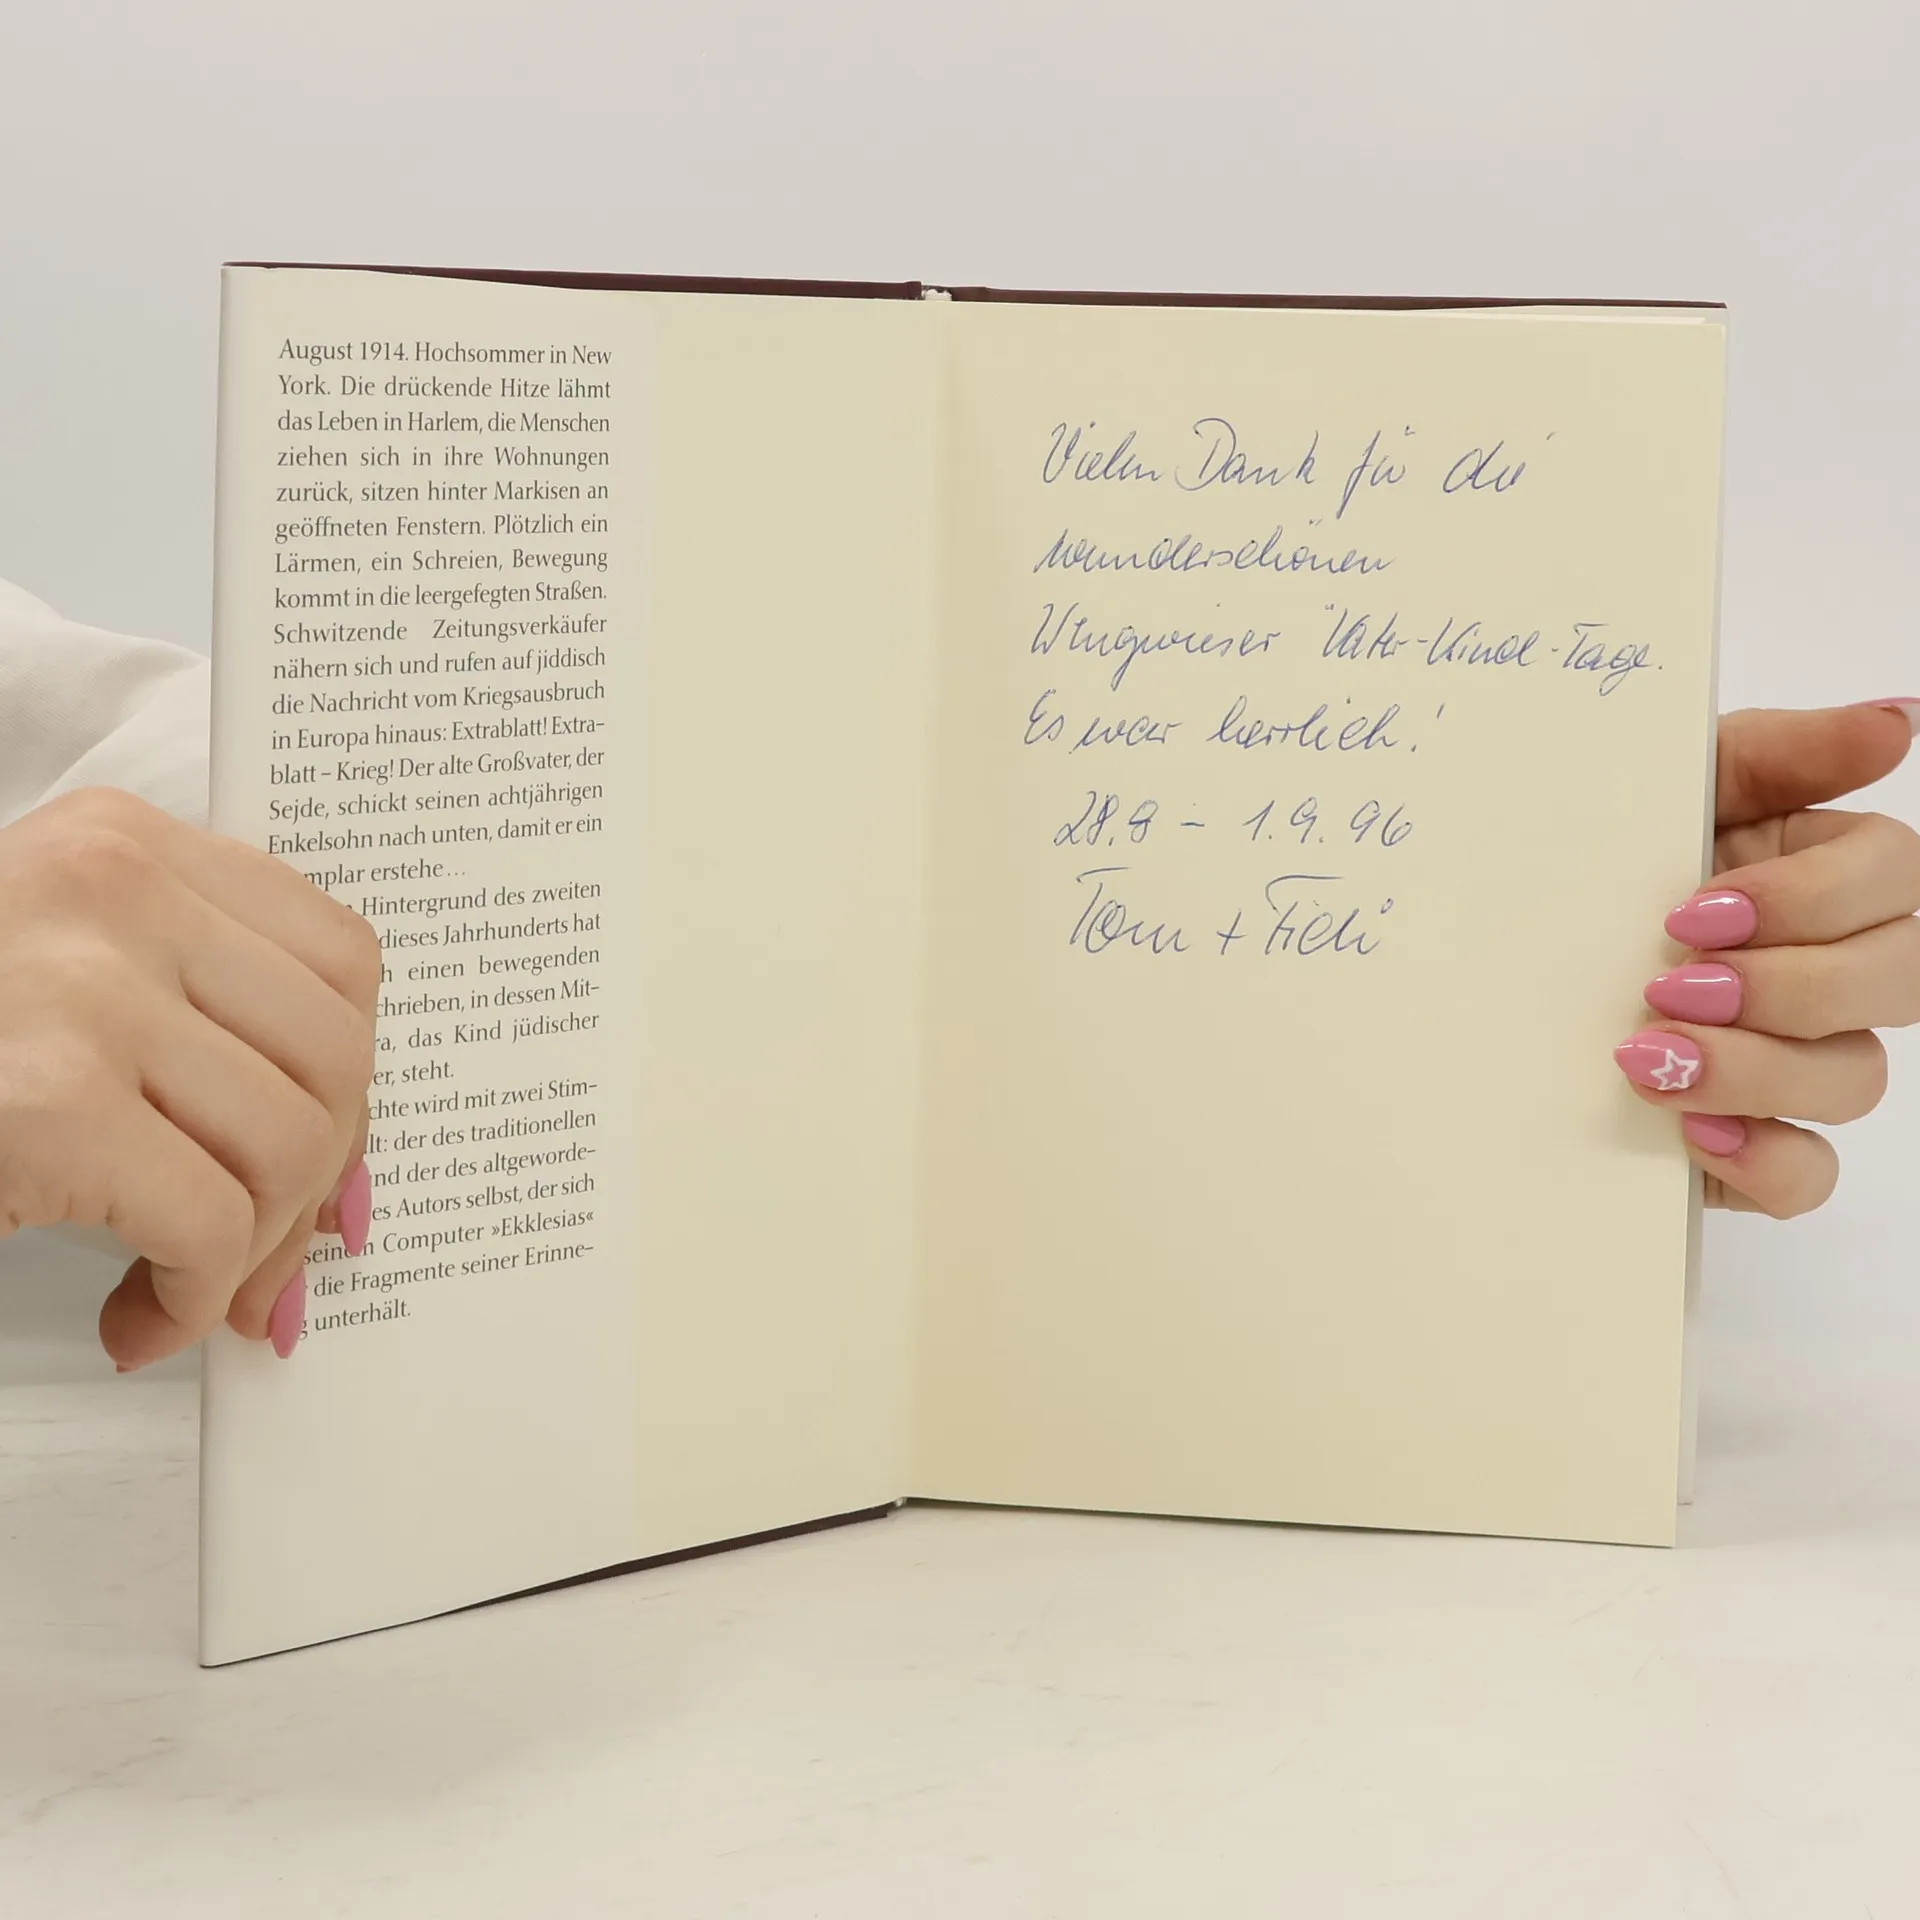 August 1914. Hochsommer in New
York. Die drückende Hitze lähmt
das Leben in Harlem, die Menschen
ziehen sich in ihre Wohnungen
zurück, sitzen hinter Markisen an
geöffneten Fenstern. Plötzlich ein
Lärmen, ein Schreien, Bewegung
kommt in die leergefegten Straßen.
Schwitzende Zeitungsverkäufer
nähern sich und rufen auf jiddisch
die Nachricht vom Kriegsausbruch
in Europa hinaus: Extrablatt! Extra-
blatt – Krieg! Der alte Großvater, der
Sejde, schickt seinen achtjährigen
Enkelsohn nach unten, damit er ein
mplar erstehe…
Hintergrund des zweiten
dieses Jahrhunderts hat
h einen bewegenden
chrieben, in dessen Mit-
ra, das Kind jüdischer
er, steht.
chte wird mit zwei Stim-
lt: der des traditionellen
nd der des altgeworde-
es Autors selbst, der sich
seinem Computer »Ekklesias«
die Fragmente seiner Erinne-
g unterhält.
Vielen Dank für die
wunderschönen
Väter-Kind-Tage.
Es war herrlich!
28.8 – 1.9.96
Tom +